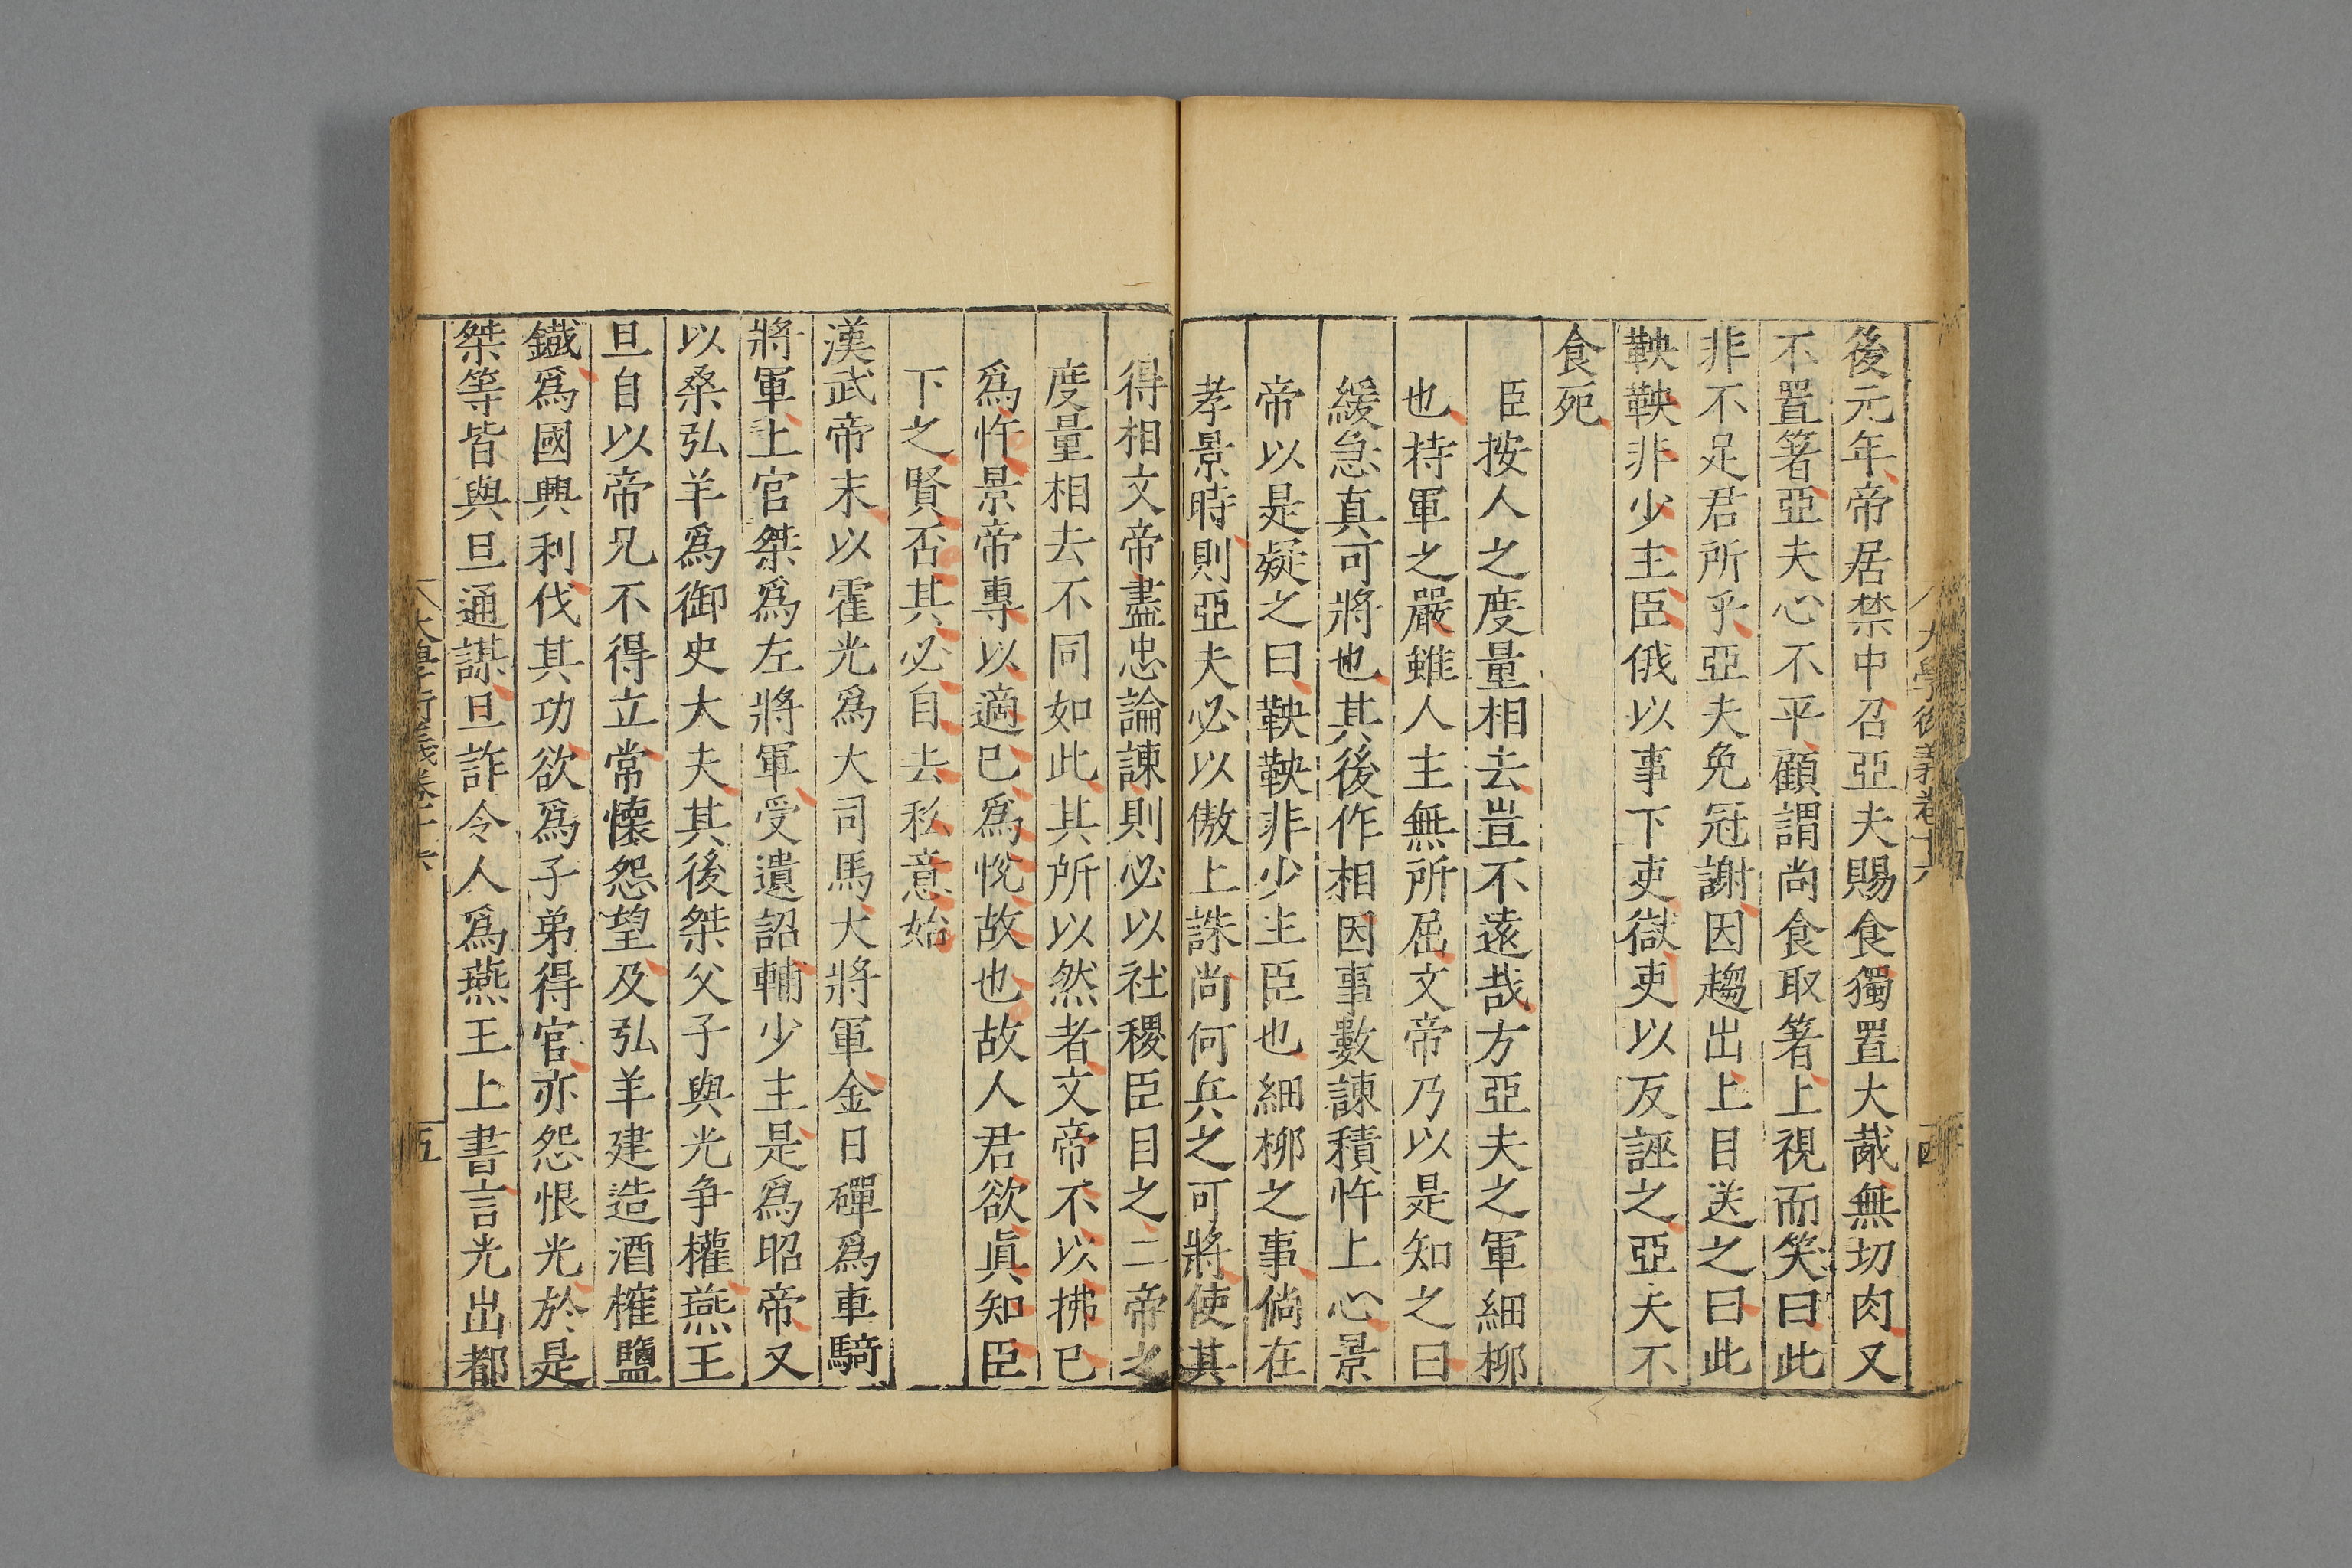 大學衍義卷十六
四
後元年帝居禁中召亞夫賜食獨置大胾無切肉又
不置箸亞夫心不平顧謂尚食取箸上視而笑曰此
非不足君所乎亞夫免冠謝因趨出上目送之曰此
鞅鞅非少主臣俄以事下吏獄吏以反誣之亞夫不
食死
臣按人之度量相去豈不遠哉方亞夫之軍細柳
也持軍之嚴雖人主無所屈文帝乃以是知之曰
緩急真可將也其後作相因事數諫積忤上心景
帝以是疑之曰鞅鞅非少主臣也細柳之事倘在
孝景時則亞夫必以傲上誅尚何兵之可將使其
得相文帝盡忠論諫則必以社稷臣目之二帝之
度量相去不同如此其所以然者文帝不以拂已
爲忤景帝專以適已爲悅故也故人君欲眞知臣
下之賢否其必自去私意始
漢武帝末以霍光爲大司馬大將軍金日磾爲車騎
將軍上官桀爲左將軍受遺詔輔少主是爲昭帝又
以桑弘羊爲御史大夫其後桀父子與光争權燕王
旦自以帝兄不得立常懷怨望及弘羊建造酒榷鹽
鐵爲國興利伐其功欲爲子弟得官亦怨恨光於是
桀等皆與旦通謀旦詐令人爲燕王上書言光出都
大學衍義卷十六
五